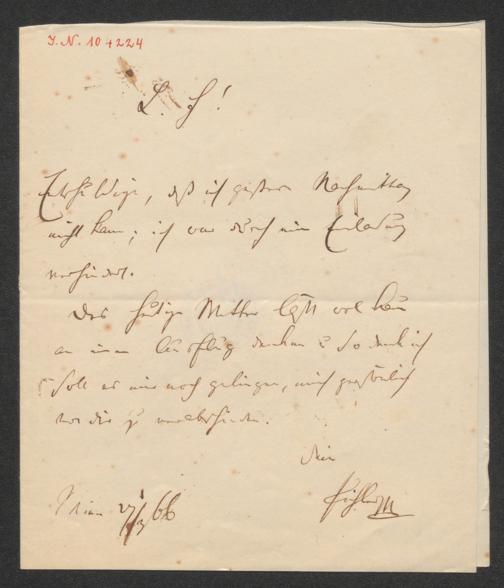 I.N. 104224
L. F!
Entschuldige, daß ich gestern Nachmittag
nicht kam; ich war durch eine Einladung
verhindert.
Das heutige Wetter läßt wol kaum
an einen Ausflug denken & so denk ich
soll es mir noch gelingen, mich persönlich
von dir zu verabschieden.
Dein
Wien 27/3 66